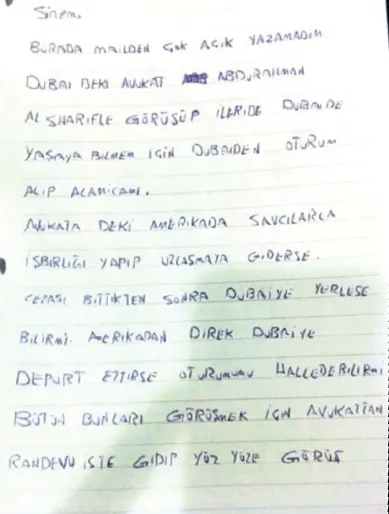 Sinem,
BURADA MAILDEN ÇOK AÇIK YAZAMADIM
DUBAI DEKI AVUKAT ABDURAHMAN
AL SHARIFLE GÖRÜŞÜP ILERIDE DUBAIDE
YAŞAYA BILMEM IÇIN DUBAIDEN OTURUM
ALIP ALAMICAMI.
AVUKATA DEKI AMERIKADA SAVCILARLA
IŞBIRLIĞI YAPIP UZLAŞMAYA GIDERSE.
CEZASI BITIKTEN SONRA DUBAIYE YERLEŞE
BILIRMI. AMERIKADAN DIREK DUBAIYE
DEPORT ETTIRSE OTURUMUMU HALLEDEBILIRMI
BÜTÜN BUNLARI GÖRÜŞMEK IÇIN AVUKATTAN
RANDEVU ISTE GIDIP YÜZ YÜZE GÖRÜŞ